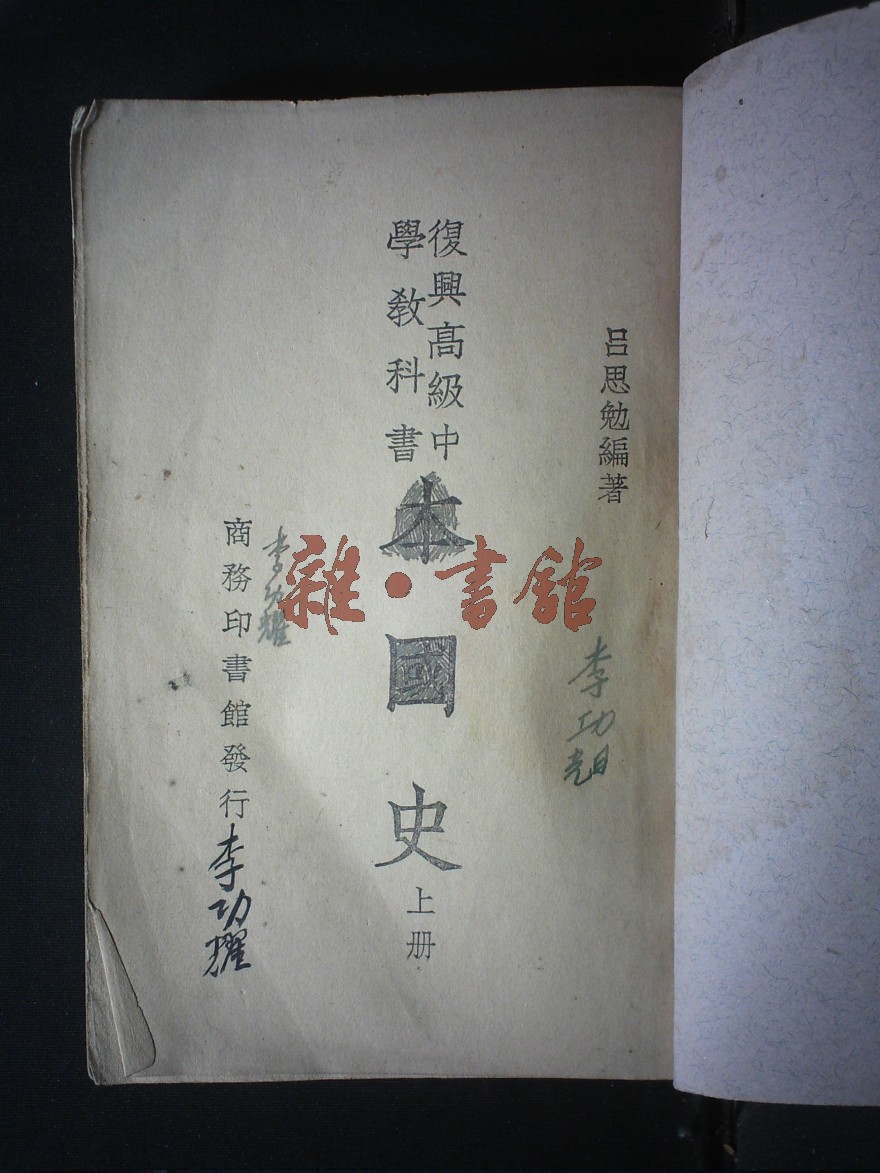 呂思勉編著
李功
復興高級中
學教科書
本國史
上册
雜·書館
李功耀
商務印書館發行
李功耀